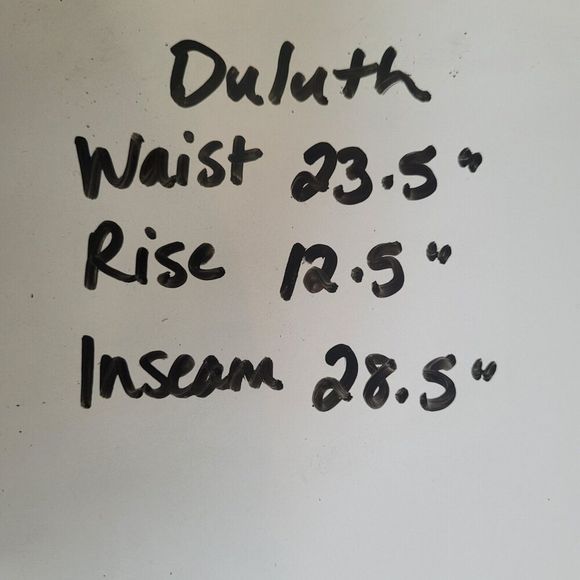 Duluth
Waist 23.5"
Rise 12.5"
Inseam 28.5"